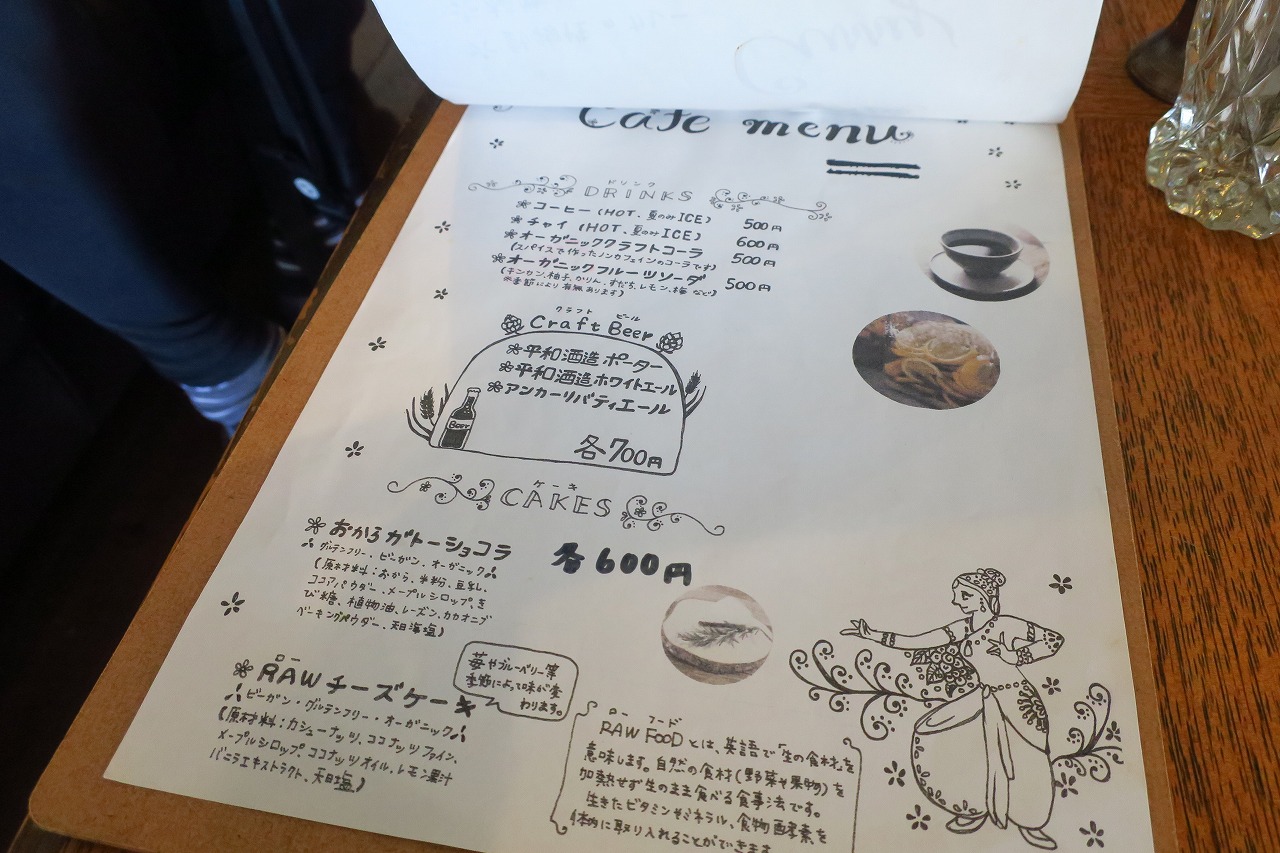 Cafe menu
ドリンク
DRINKS
コーヒー (HOT、夏のみICE) 500円
チャイ (HOT、夏のみICE) 600円
オーガニッククラフトコーラ 500円
(スパイスで作ったノンカフェインのコーラです)
オーガニックフルーツソーダ 500円
(キンカン、柚子、かりん、すだち、レモン、梅 など)
※季節により有無あります)
クラフト ビール
Craft Beer
平和酒造 ポーター
平和酒造ホワイトエール
アンカーリバティエール
Beer
各700円
ケーキ
CAKES
おからガトーショコラ
各600円
グルテンフリー・ビーガン・オーガニック
(原材料:おから、米粉、豆乳、
ココアパウダー、メープルシロップ、き
び糖、植物油、レーズン、カカオニブ
ベーキングパウダー、天日海塩)
苺やブルーベリー等
季節によって味が変
わります。
ロー
RAWチーズケーキ
ビーガン・グルテンフリー・オーガニック
(原材料:カシューナッツ、ココナッツファイン、
メープルシロップ、ココナッツオイル、レモン果汁
バニラエキストラクト、天日塩)
ロー フード
RAW FOODとは、英語で「生の食材」を
意味します。自然の食材(野菜や果物)を
加熱せず生のまま食べる食事法です。
生きたビタミンやミネラル、食物酵素を
体内に取り入れることができます